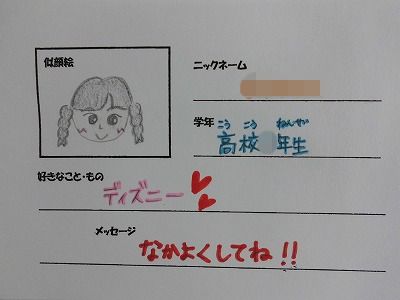 似顔絵
ニックネーム
学年
こうこう ねんせい
高校 年生
好きなこと・もの
ディズニー
メッセージ
なかよくしてね!!